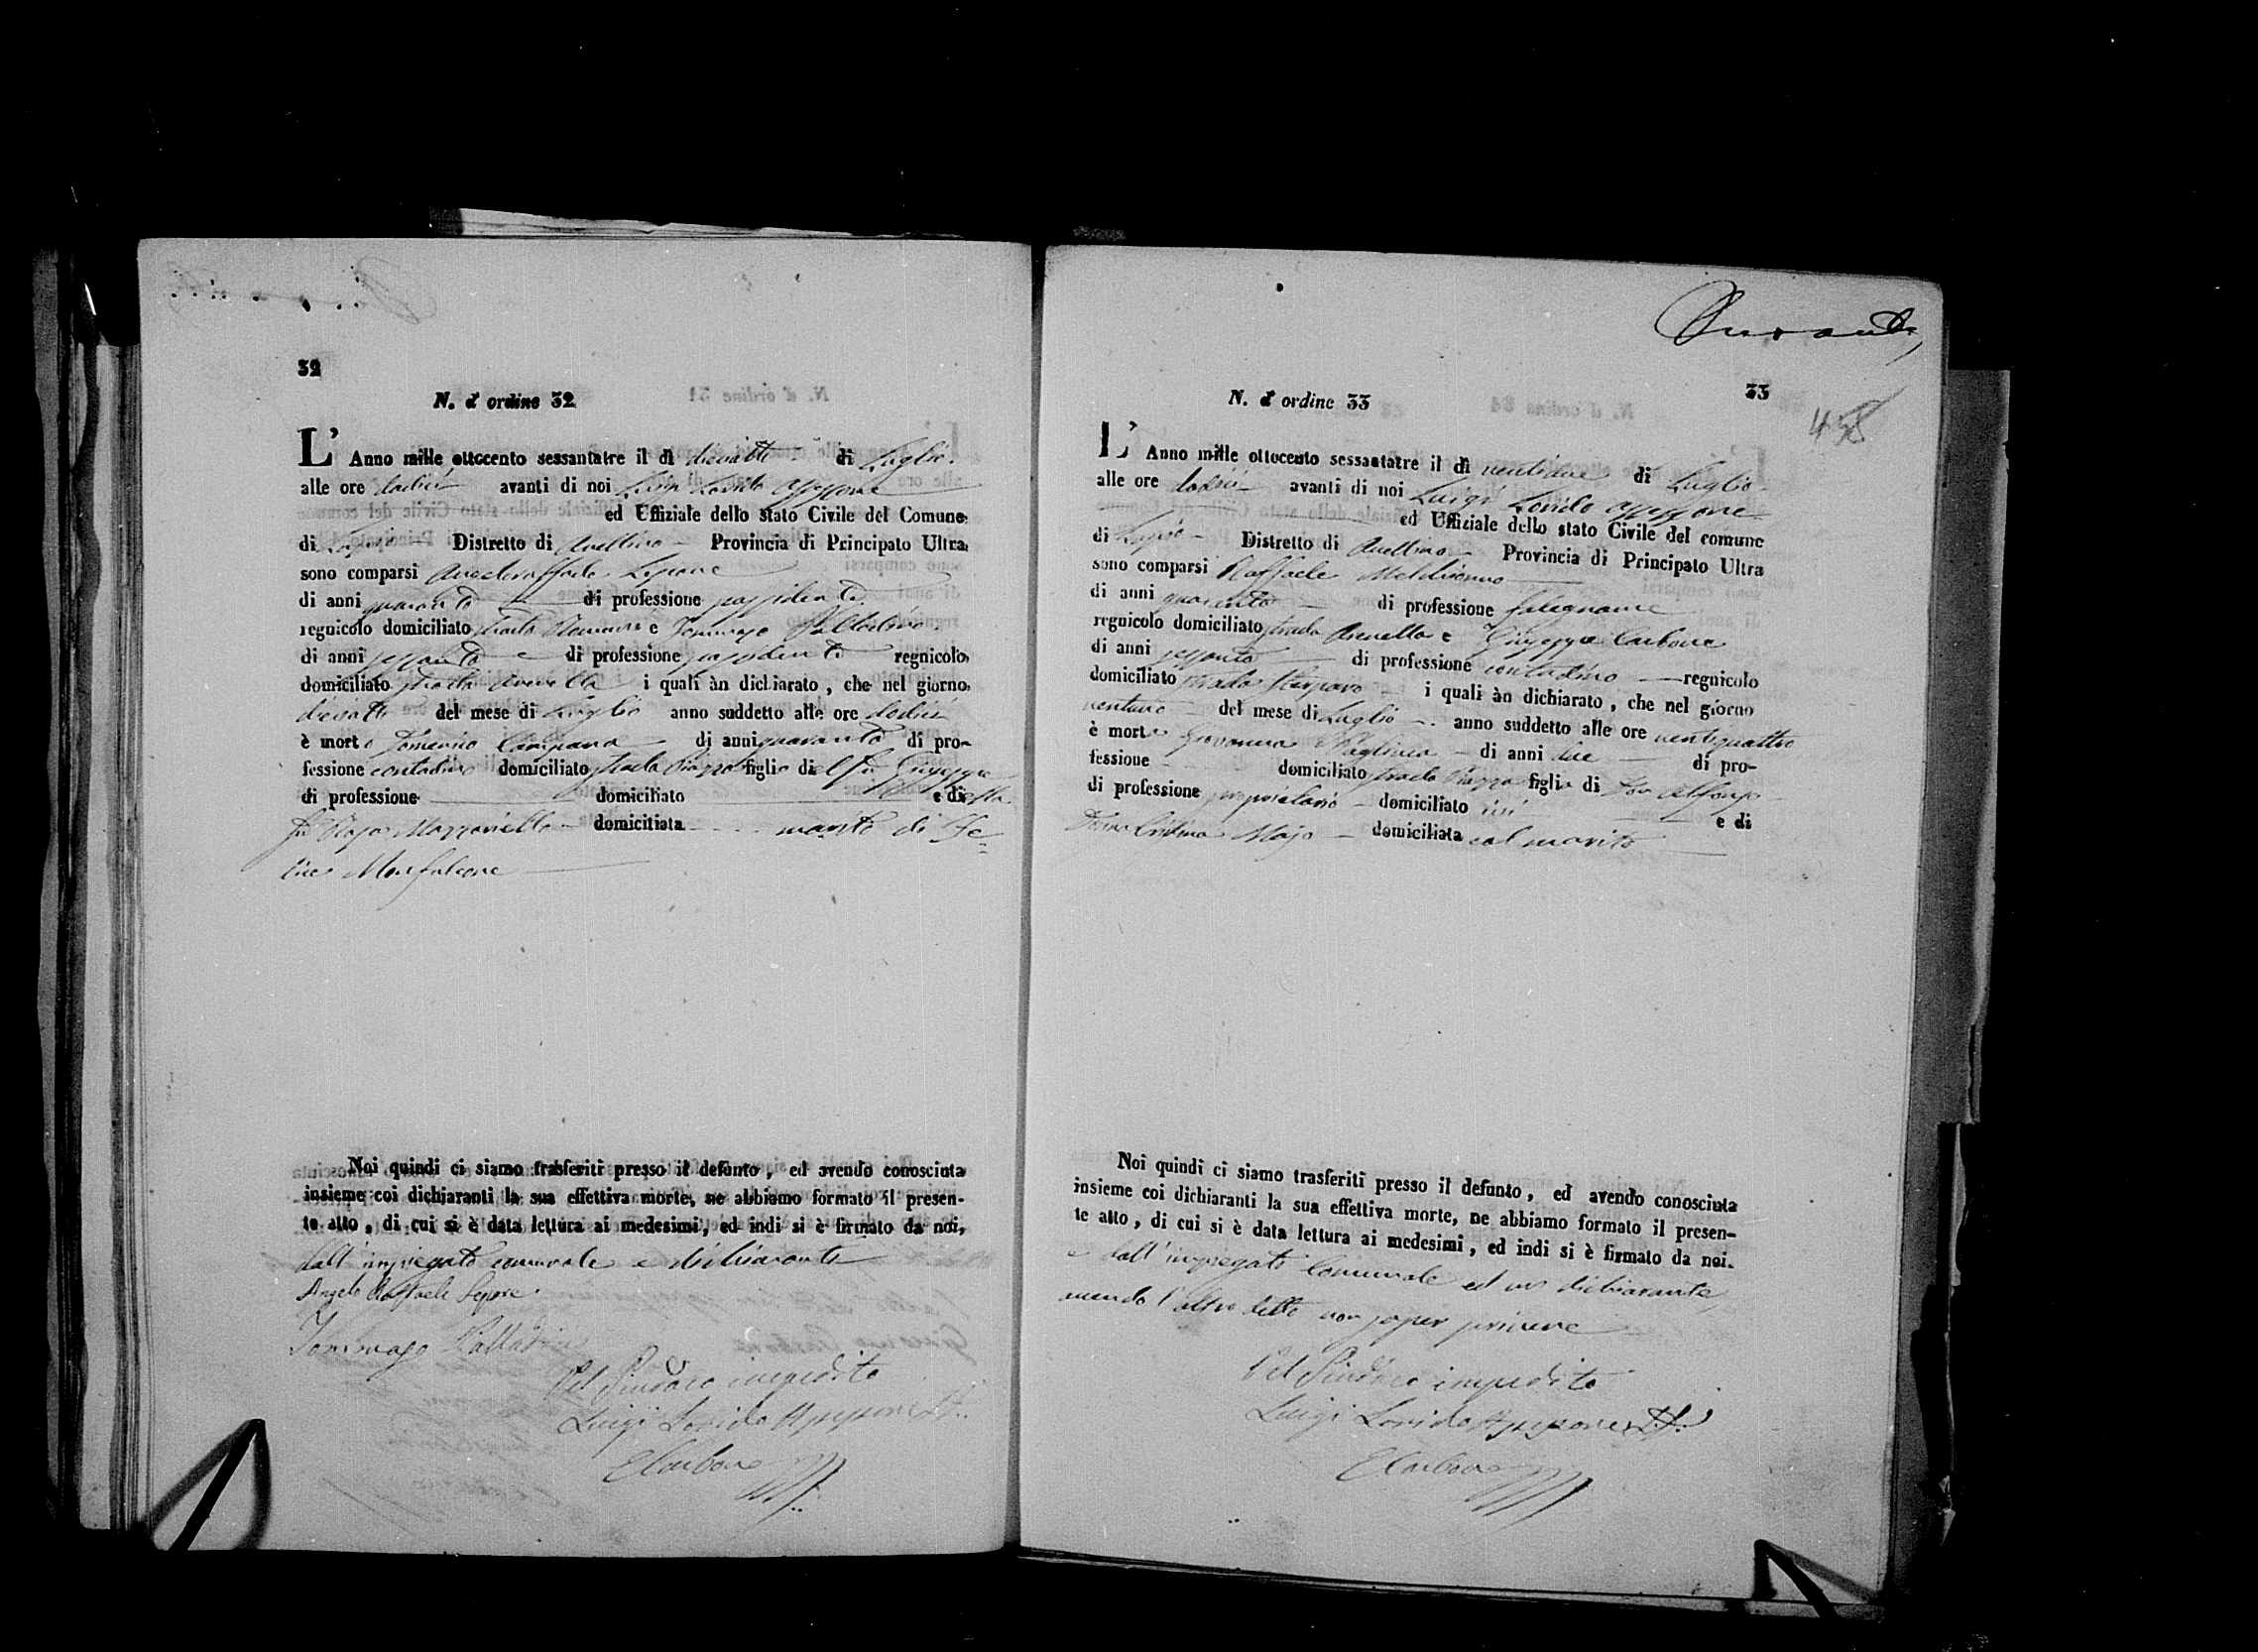 32
N. d' ordine 32
L' Anno mille ottocento sessantatre il dì diciotto di Luglio
alle ore dodici avanti di noi Luigi Lonido Assessore
ed Uffiziale dello stato Civile del Comune
di Lapio Distretto di Avellino Provincia di Principato Ultra
sono comparsi Angeloraffaele Lepore
di anni quaranta di professione possidente
regnicolo domiciliato strada e Tommaso Palladino
di anni sessanta di professione possidente regnicolo
domiciliato strada Arenella i quali àn dichiarato, che nel giorno
diciotto del mese di Luglio anno suddetto alle ore dodici
è morto Domenico Campana di anni quaranta di pro-
fessione contadino domiciliato strada Piazza figlio di fu Giuseppe
di professione domiciliato e di
fu Rosa Mazzariello domiciliata marito di Fe-
lice Monfalcone
Noi quindi ci siamo trasferiti presso il defunto, ed avendo conosciuta
insieme coi dichiaranti la sua effettiva morte, ne abbiamo formato il presen-
te atto, di cui si è data lettura ai medesimi, ed indi si è firmato da noi,
dall'impiegato comunale e dichiaranti
Angelo Raffaele Lepore
Tommaso Palladino
Pel Sindaco impedito
Luigi Lonido Assessore
Carbone
33
N. d' ordine 33
L' Anno mille ottocento sessantatre il dì ventidue di Luglio
alle ore dodici avanti di noi Luigi Lonido Assessore
ed Uffiziale dello stato Civile del comune
di Lapio Distretto di Avellino Provincia di Principato Ultra
sono comparsi Raffaele
di anni quaranta di professione falegname
regnicolo domiciliato strada Arenella e Giuseppe Carbone
di anni sessanta di professione contadino regnicolo
domiciliato strada i quali àn dichiarato, che nel giorno
ventuno del mese di Luglio anno suddetto alle ore ventiquattro
è morta Giovanna di anni due di pro-
fessione domiciliato strada Piazza figlia di Don Alfonso
di professione proprietario domiciliato ivi e di
Donna Cristina Majo domiciliata col marito
Noi quindi ci siamo trasferiti presso il defunto, ed avendo conosciuta
insieme coi dichiaranti la sua effettiva morte, ne abbiamo formato il presen-
te atto, di cui si è data lettura ai medesimi, ed indi si è firmato da noi.
e dall'impiegato Comunale ed un dichiarante,
avendo l'altro detto non saper scrivere
Pel Sindaco impedito
Luigi Lonido Assessore
Carbone